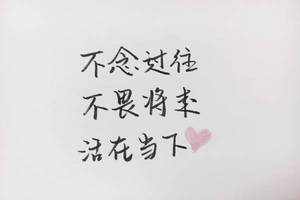 不念过往
不畏将来
活在当下